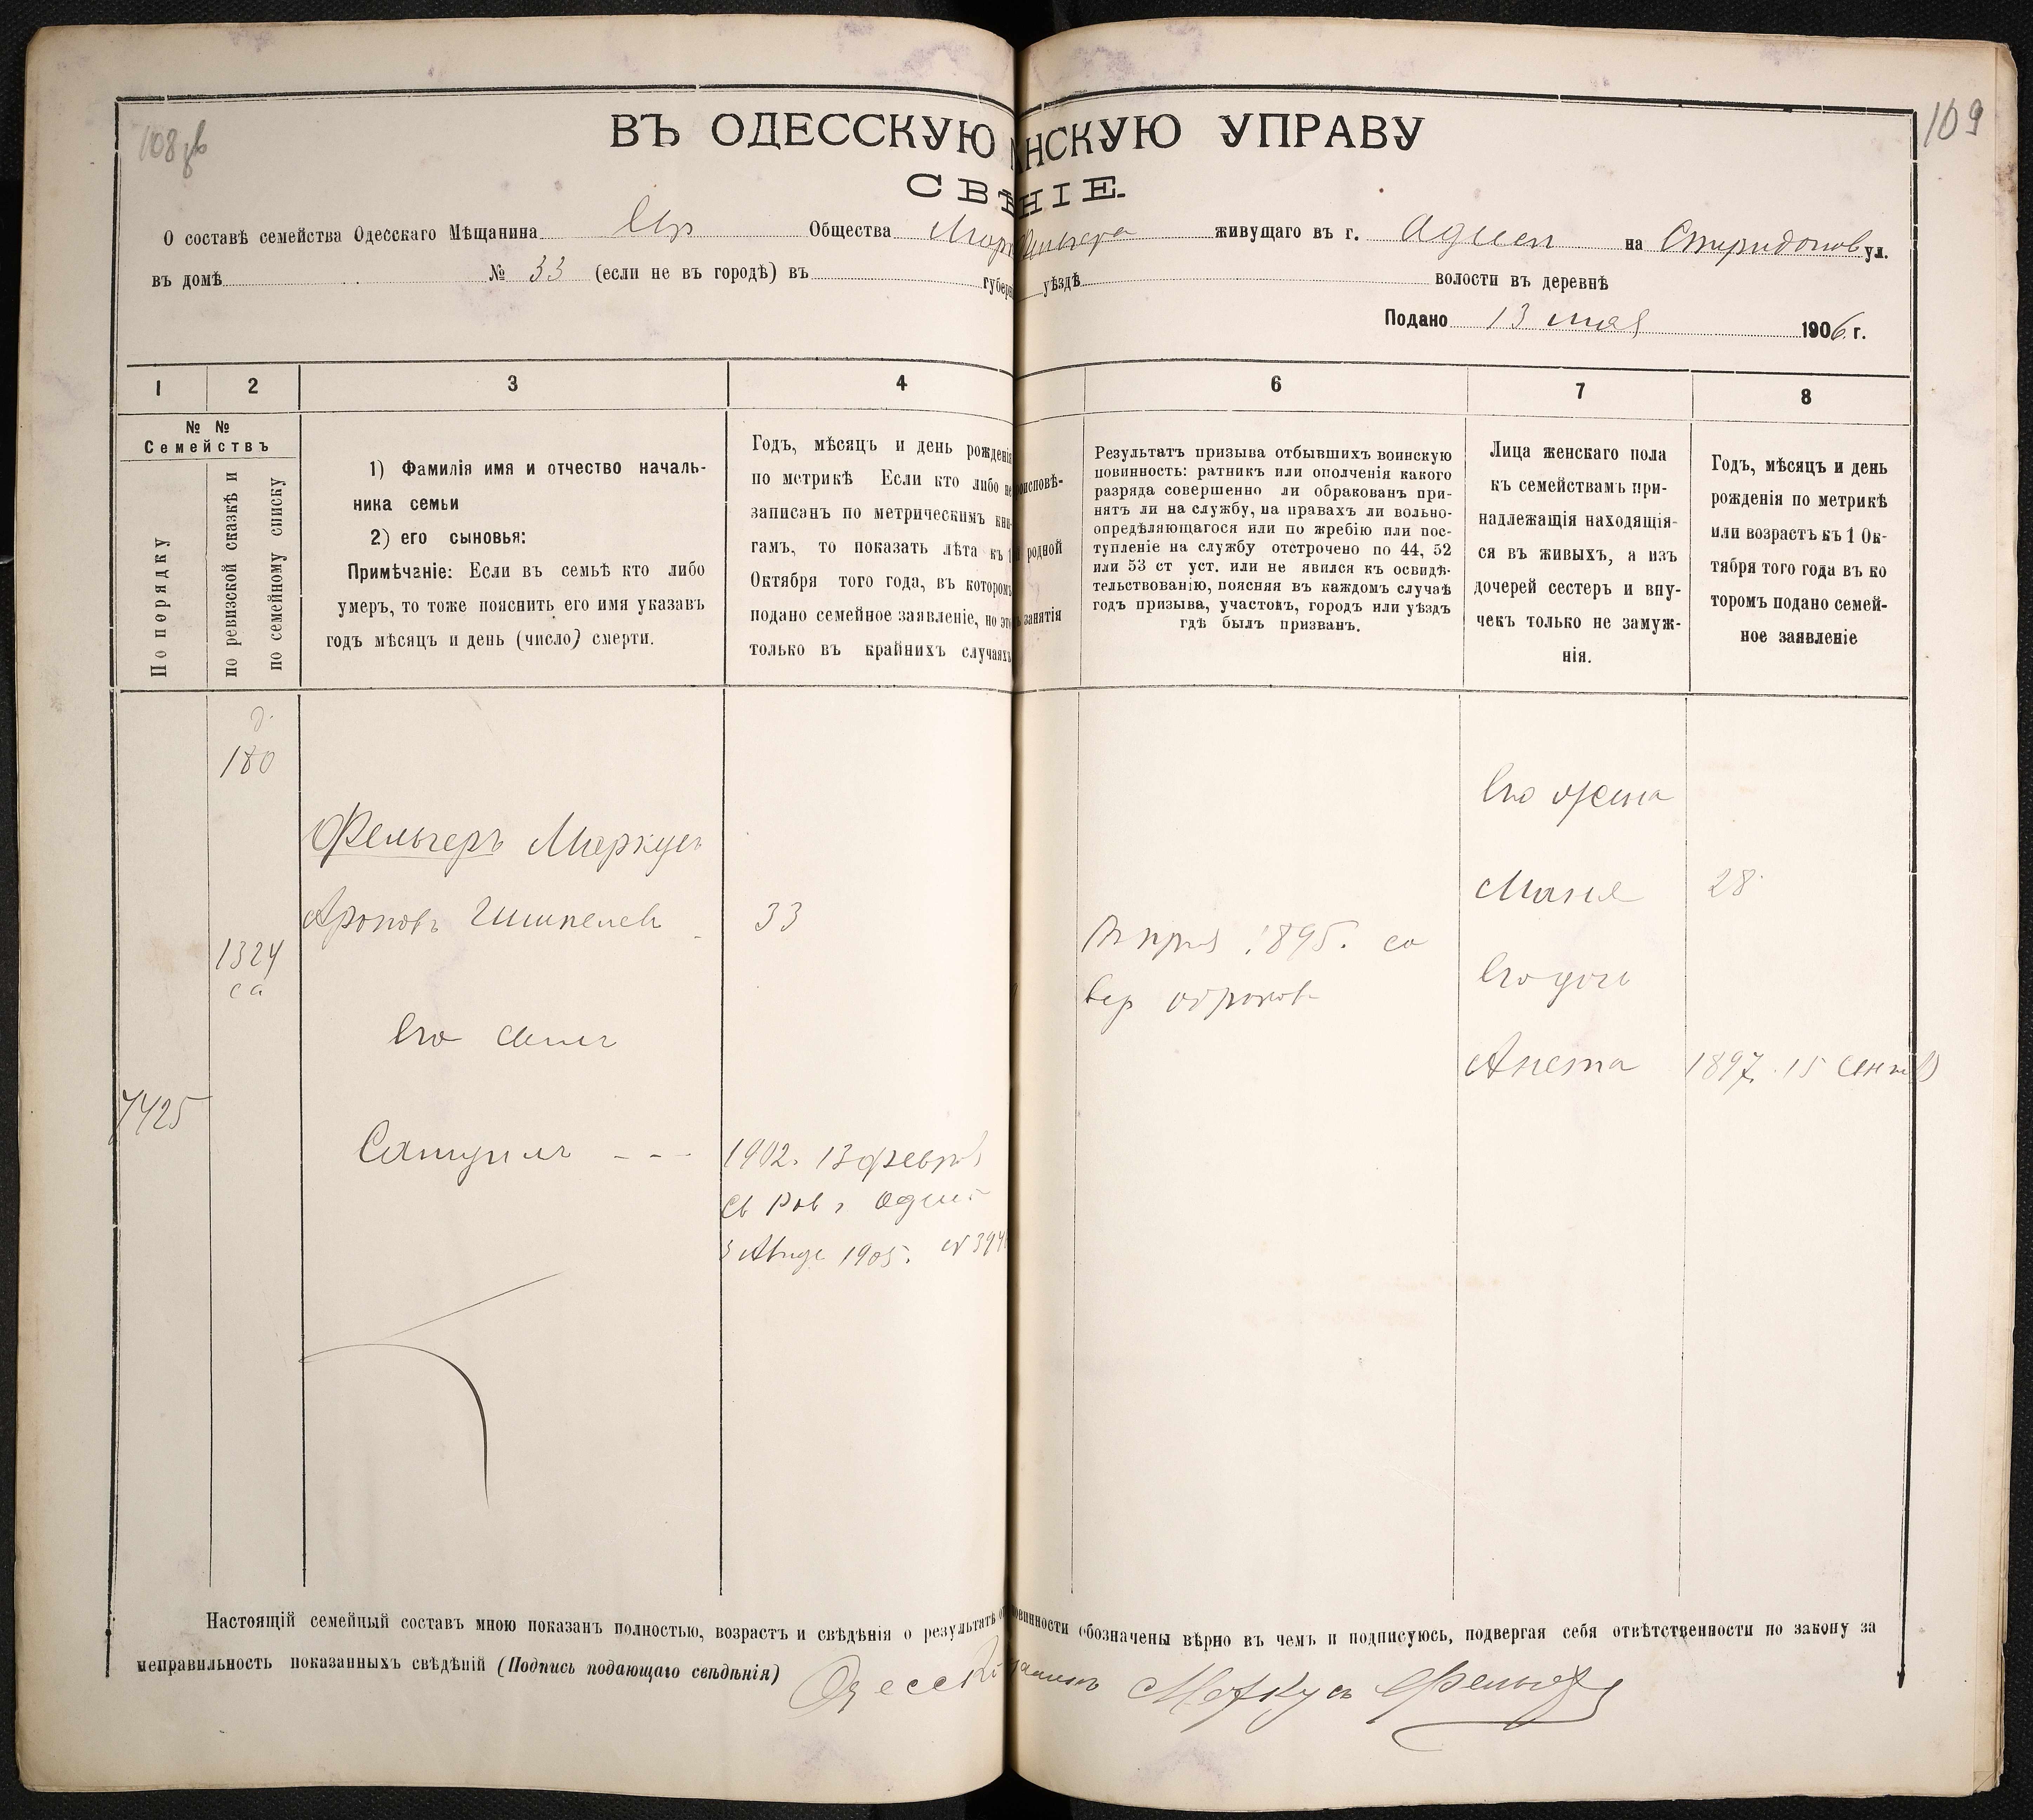 108 об
109
ВЪ ОДЕССКУЮ НСКУЮ УПРАВУ
СВѢ НІЕ.
О составѣ семейства Одесскаго Мѣщанина Евр Общества Марк Фельгера живущаго въ г. Одессѣ на Спиридонов ул.
въ домѣ № 33 (если не въ городѣ) въ губер уѣздѣ волости въ деревнѣ
Подано 13 мая 1906 г.
1 2 3 4 6 7 8
№ №
Семействъ
По порядку
по ревизской сказкѣ и
по семейному списку
1) Фамилія имя и отчество началь-
ника семьи
2) его сыновья:
Примѣчаніе: Если въ семьѣ кто либо
умеръ, то тоже пояснить его имя указавъ
годъ мѣсяцъ и день (число) смерти.
Годъ, мѣсяцъ и день рожденія
по метрикѣ Если кто либо не
записанъ по метрическимъ кни-
гамъ, то показать лѣта къ 1
Октября того года, въ которомъ
подано семейное заявленіе, но это
только въ крайнихъ случаяхъ
оисповѣ-
родной
занятія
Результатъ призыва отбывшихъ воинскую
повинность: ратникъ или ополченія какого
разряда совершенно ли обракованъ при-
нятъ ли на службу, на правахъ ли вольно-
опредѣляющагося или по жребію или пос-
тупленіе на службу отстрочено по 44, 52
или 53 ст уст. или не явился къ освидѣ-
тельствованію, поясняя въ каждомъ случаѣ
годъ призыва, участокъ, городъ или уѣздъ
гдѣ былъ призванъ.
Лица женскаго пола
къ семействамъ при-
надлежащія находящія-
ся въ живыхъ, а изъ
дочерей сестеръ и вну-
чекъ только не замуж-
нія.
Годъ, мѣсяцъ и день
рожденія по метрикѣ
или возрастъ къ 1 Ок-
тября того года въ ко
торомъ подано семей-
ное заявленіе
д.
180
Его жена
Фельгеръ Маркусъ
Ароновъ 33
Маня 28
1324
са
1895. со
вер обраков
Его дочь
Его сынъ
Анета 1897. 15 сент
7425
Самуилъ - - - 1902. 13 февр
Св Рав г Одес
3 Авгу 1905. № 394
Настоящій семейный составъ мною показанъ полностью, возрастъ и свѣдѣнія о результатѣ о овинности обозначены вѣрно въ чемъ и подписуюсь, подвергая себя отвѣтственности по закону за
неправильность показанныхъ свѣдѣній (Подпись подающаго свѣдѣнія) Одесскі Маркусъ Фельгеръ